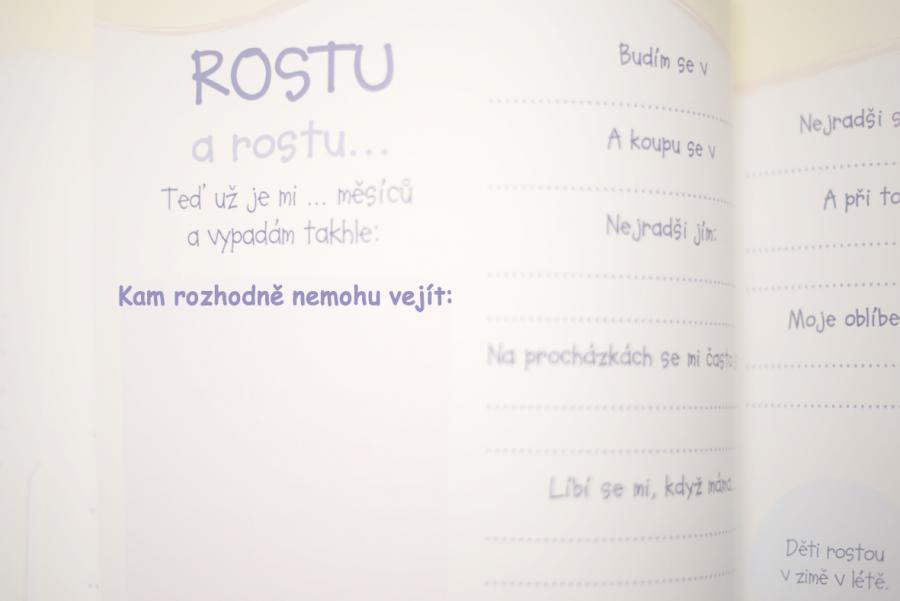 ROSTU
a rostu...
Teď už je mi ... měsíců
a vypadám takhle:
Kam rozhodně nemohu vejít:
Budím se v
A koupu se v
Nejradši jím:
Na procházkách se mi často
Líbí se mi, když máma
Nejradši s
A při to
Moje oblíbe
Děti rostou
v zimě v létě.